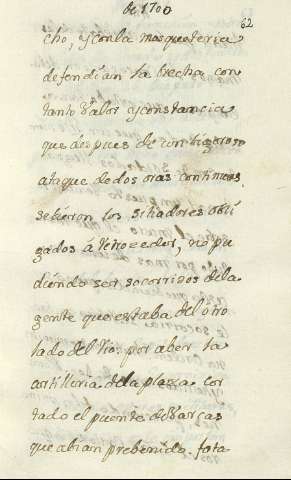 de 1700
62
cho, y con la mosqueteria
defendian la brecha con
tanto valor y constancia
que despues de un rigoroso
ataque de dos oras continuas,
se bieron los sitiadores obli
gados á retroceder, no pu
diendo ser socorridos de la
gente que estaba del otro
lado del rio. por aber la
artilleria de la plaza cor
tado el puente de barcas
que abian prebenido. forta